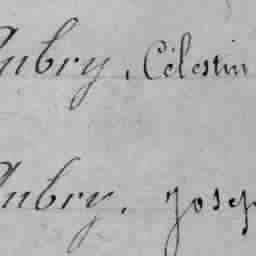 Aubry, Célestin
Aubry, Josep